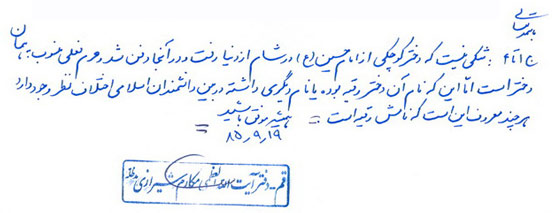 باسمه تعالی
ج ۱ تا ۴: شکی نیست که دختر کوچکی از امام حسین (ع) در شام از دنیا رفت و در آنجا دفن شد و حرم فعلی منسوب به همان
دختر است اما این که نام آن دختر رقیه بوده یا نام دیگری داشته در بین دانشمندان اسلامی اختلاف نظر وجود دارد
هر چند معروف این است که نامش رقیه است = همیشه موفق باشید =
۸۵,۹,۱۹
قم - دفتر آیت الله العظمی مکارم شیرازی مدظله